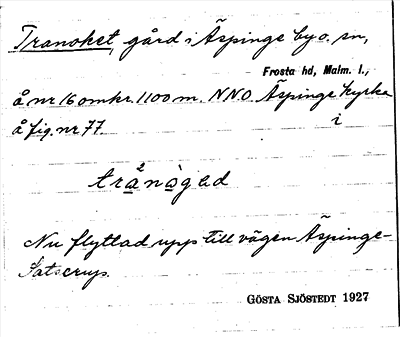 Tranoket, gård i Äspinge by o. sn,
Frosta hd, Malm. l.,
å nr 16 omkr. 1100 m. NNO Äspinge kyrka
å fig. nr 77. i
Nu flyttad upp till vägen Äspinge-
GÖSTA SJÖSTEDT 1927